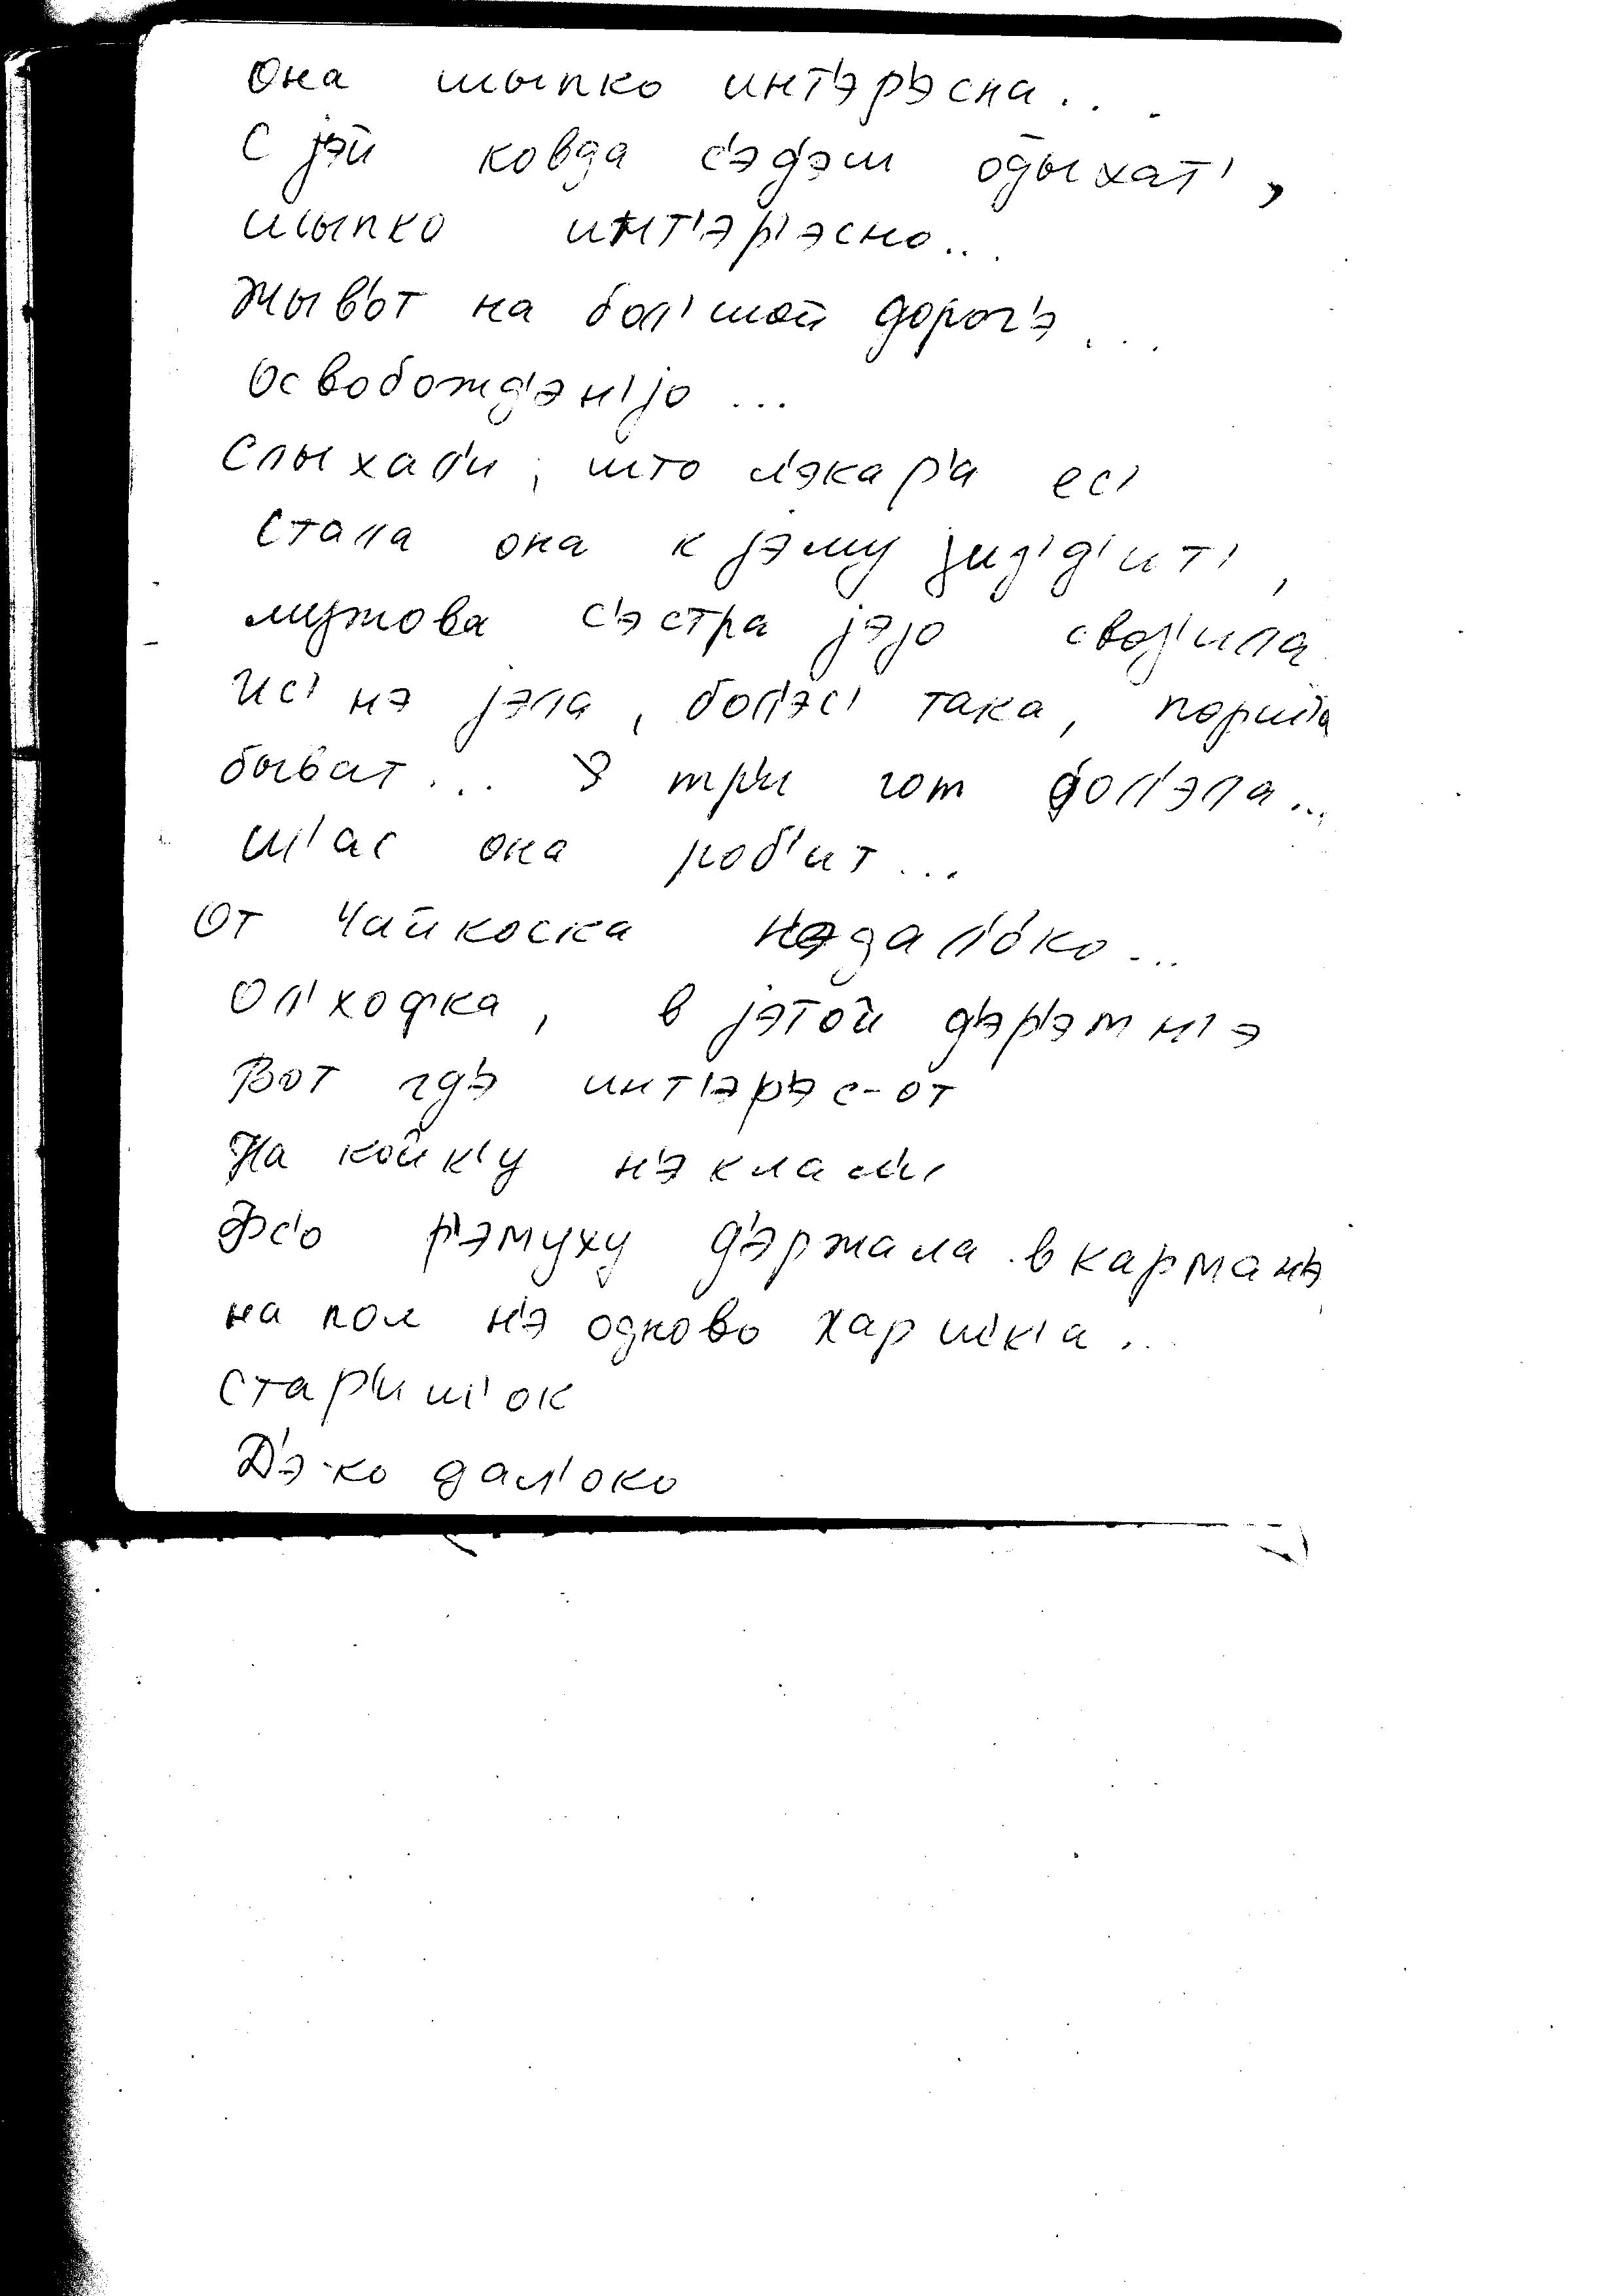 Она шыпко инт'эр'эсна...
С јэй ковда с'эд'эш од̄ыхат',
шыпко инт'эр'эсно...
Жыв'от на бол'шой дорог'э...
Освобожд'эн'јо...
Слыхал'и, што л'экар'а ес'
Стала она к јэму јид'д'ит',
мужова с'эстра јэјо свод'ила
Ис' нэ јэла, бол'эс' така, порш'а
быват... три гот бол'эла...
Ш'ас она роб'ит...
От Чайкоска нэдал'око...
Ол'ховка, в јэтой д'эр'эмн'э
Вот гд'э инт'эр'эс-от
На койк'у н'э клал'и
Фс'о р'эмуху д'эржала в карман'э
на пол н'э одново харшк'а...
Стар'иш'ок
Д'э-ко дал'око